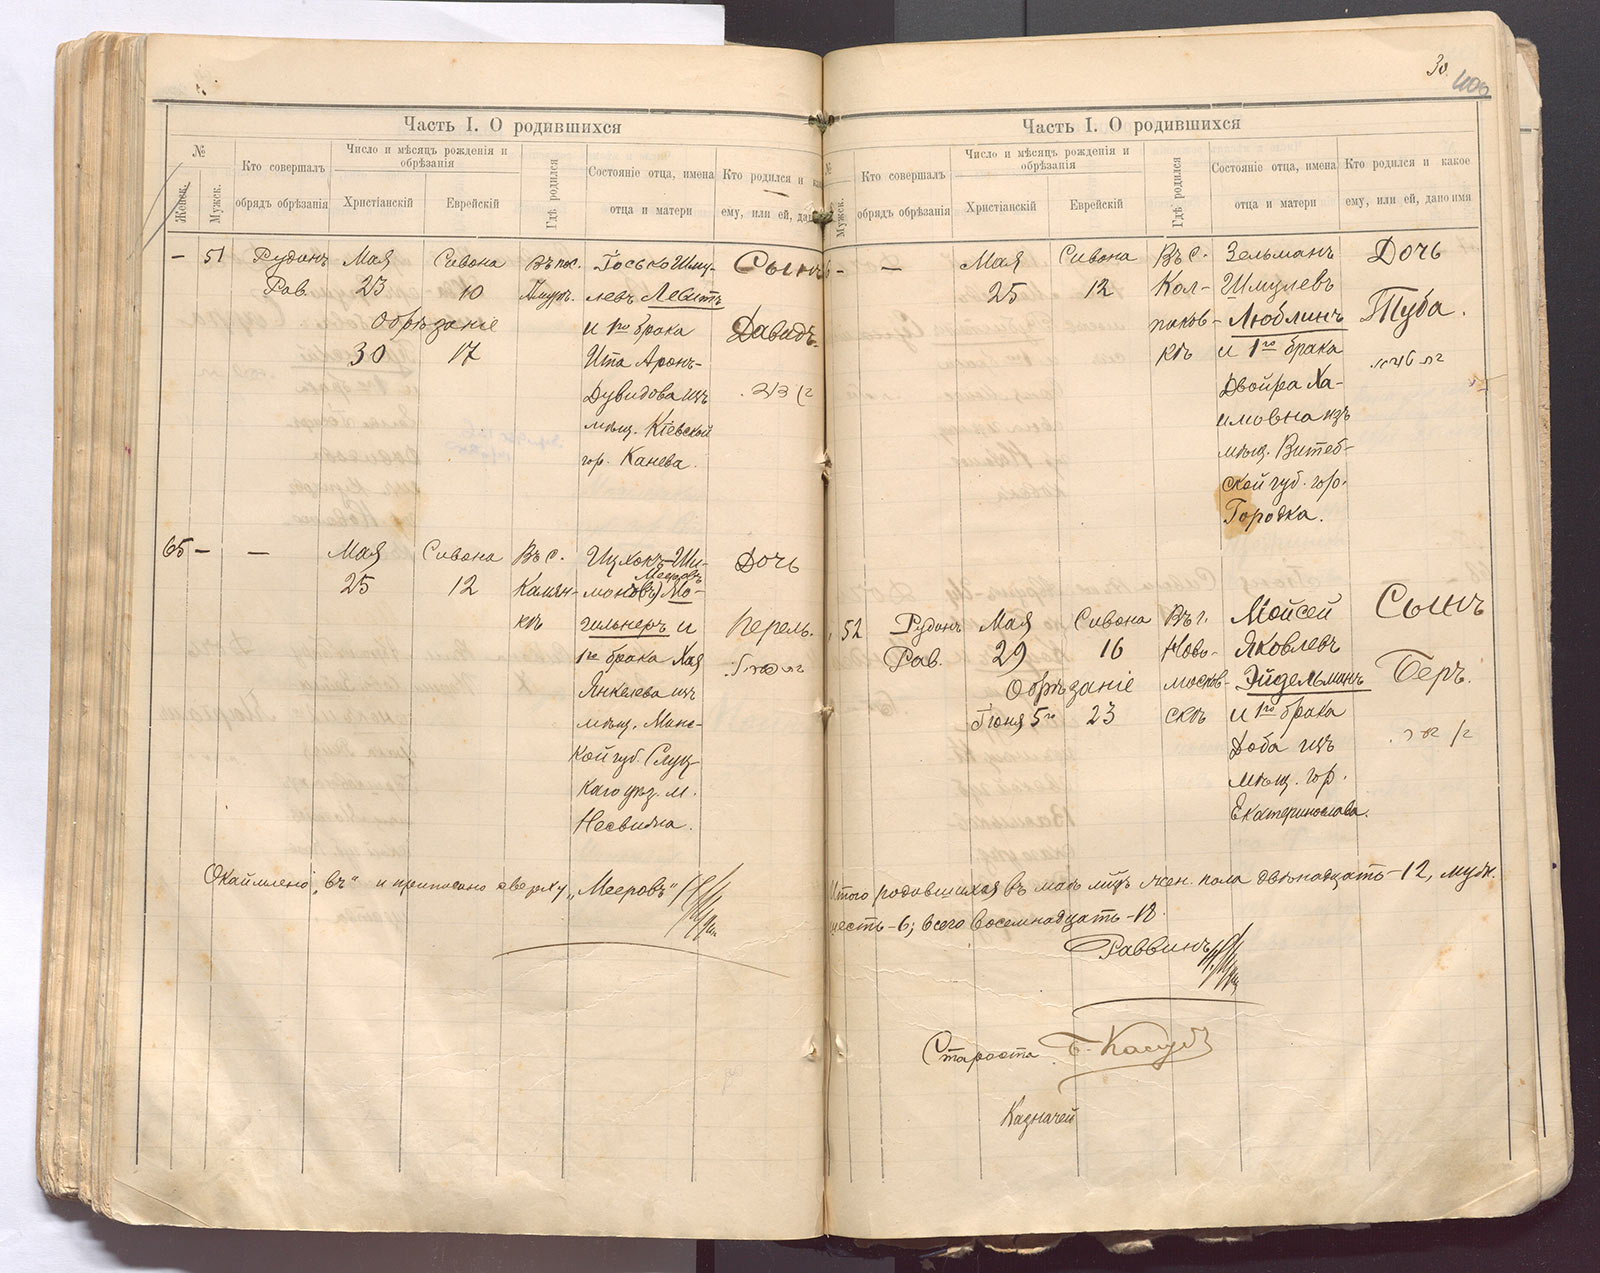 Часть I. О родившихся
№
Женск.
Мужск.
Кто совершалъ
обрядъ обрѣзанія
Число и мѣсяцъ рожденія и
обрѣзанія
Христіанскій
Еврейскій
Гдѣ родился
Состояніе отца, имена
отца и матери
Кто родился и
ему, или ей,
– 51
Рудинъ
Рав.
Мая
23
Сивона
10
Обрѣзаніе
30 17
Въ пос.
Іосько Шму-
левъ Левитъ
и 1го брака
Ита Аронъ-
Дувидова изъ
мѣщ. Кіевской
гор. Канева.
Сынъ
Давидъ.
65 –
–
Мая
25
Сивона
12
Въ с.
Камян-
кѣ
Ицхокъ-Ши-
Мееровъ
моновъ Мо-
гильнеръ и
1го брака Хая
Янкелева изъ
мѣщ. Минс-
кой губ. Слуц-
каго уѣз. м.
Несвижа.
Дочь
Перель.
Окаймлено „въ“ и приписано сверху „Мееровъ“
30.
Часть I. О родившихся
№
Мужск.
Кто совершалъ
обрядъ обрѣзанія
Число и мѣсяцъ рожденія и
обрѣзанія
Христіанскій
Еврейскій
Гдѣ родился
Состояніе отца, имена
отца и матери
Кто родился и какое
ему, или ей, дано имя
–
–
Мая
25
Сивона
12
Въ с.
Кол-
паков-
кѣ
Зельманъ
Шмулевъ
Люблинъ
и 1го брака
Двойра Ха-
имовна изъ
мѣщ. Витеб-
ской губ. гор.
Городка.
Дочь
Туба.
52
Рудинъ
Рав.
Мая
29
Сивона
16
Обрѣзаніе
Іюня 5го 23
Въ г.
Ново-
москов-
скѣ
Мойсей
Яковлевъ
Эйдельманъ
и 1го брака
Доба изъ
мѣщ. гор.
Екатеринослава.
Сынъ
Беръ.
Итого родившихся въ маѣ м-цѣ жен. пола двѣнадцать – 12, мужк.
шесть – 6; всего восемнадцать – 18.
Раввинъ
Староста
Казначей